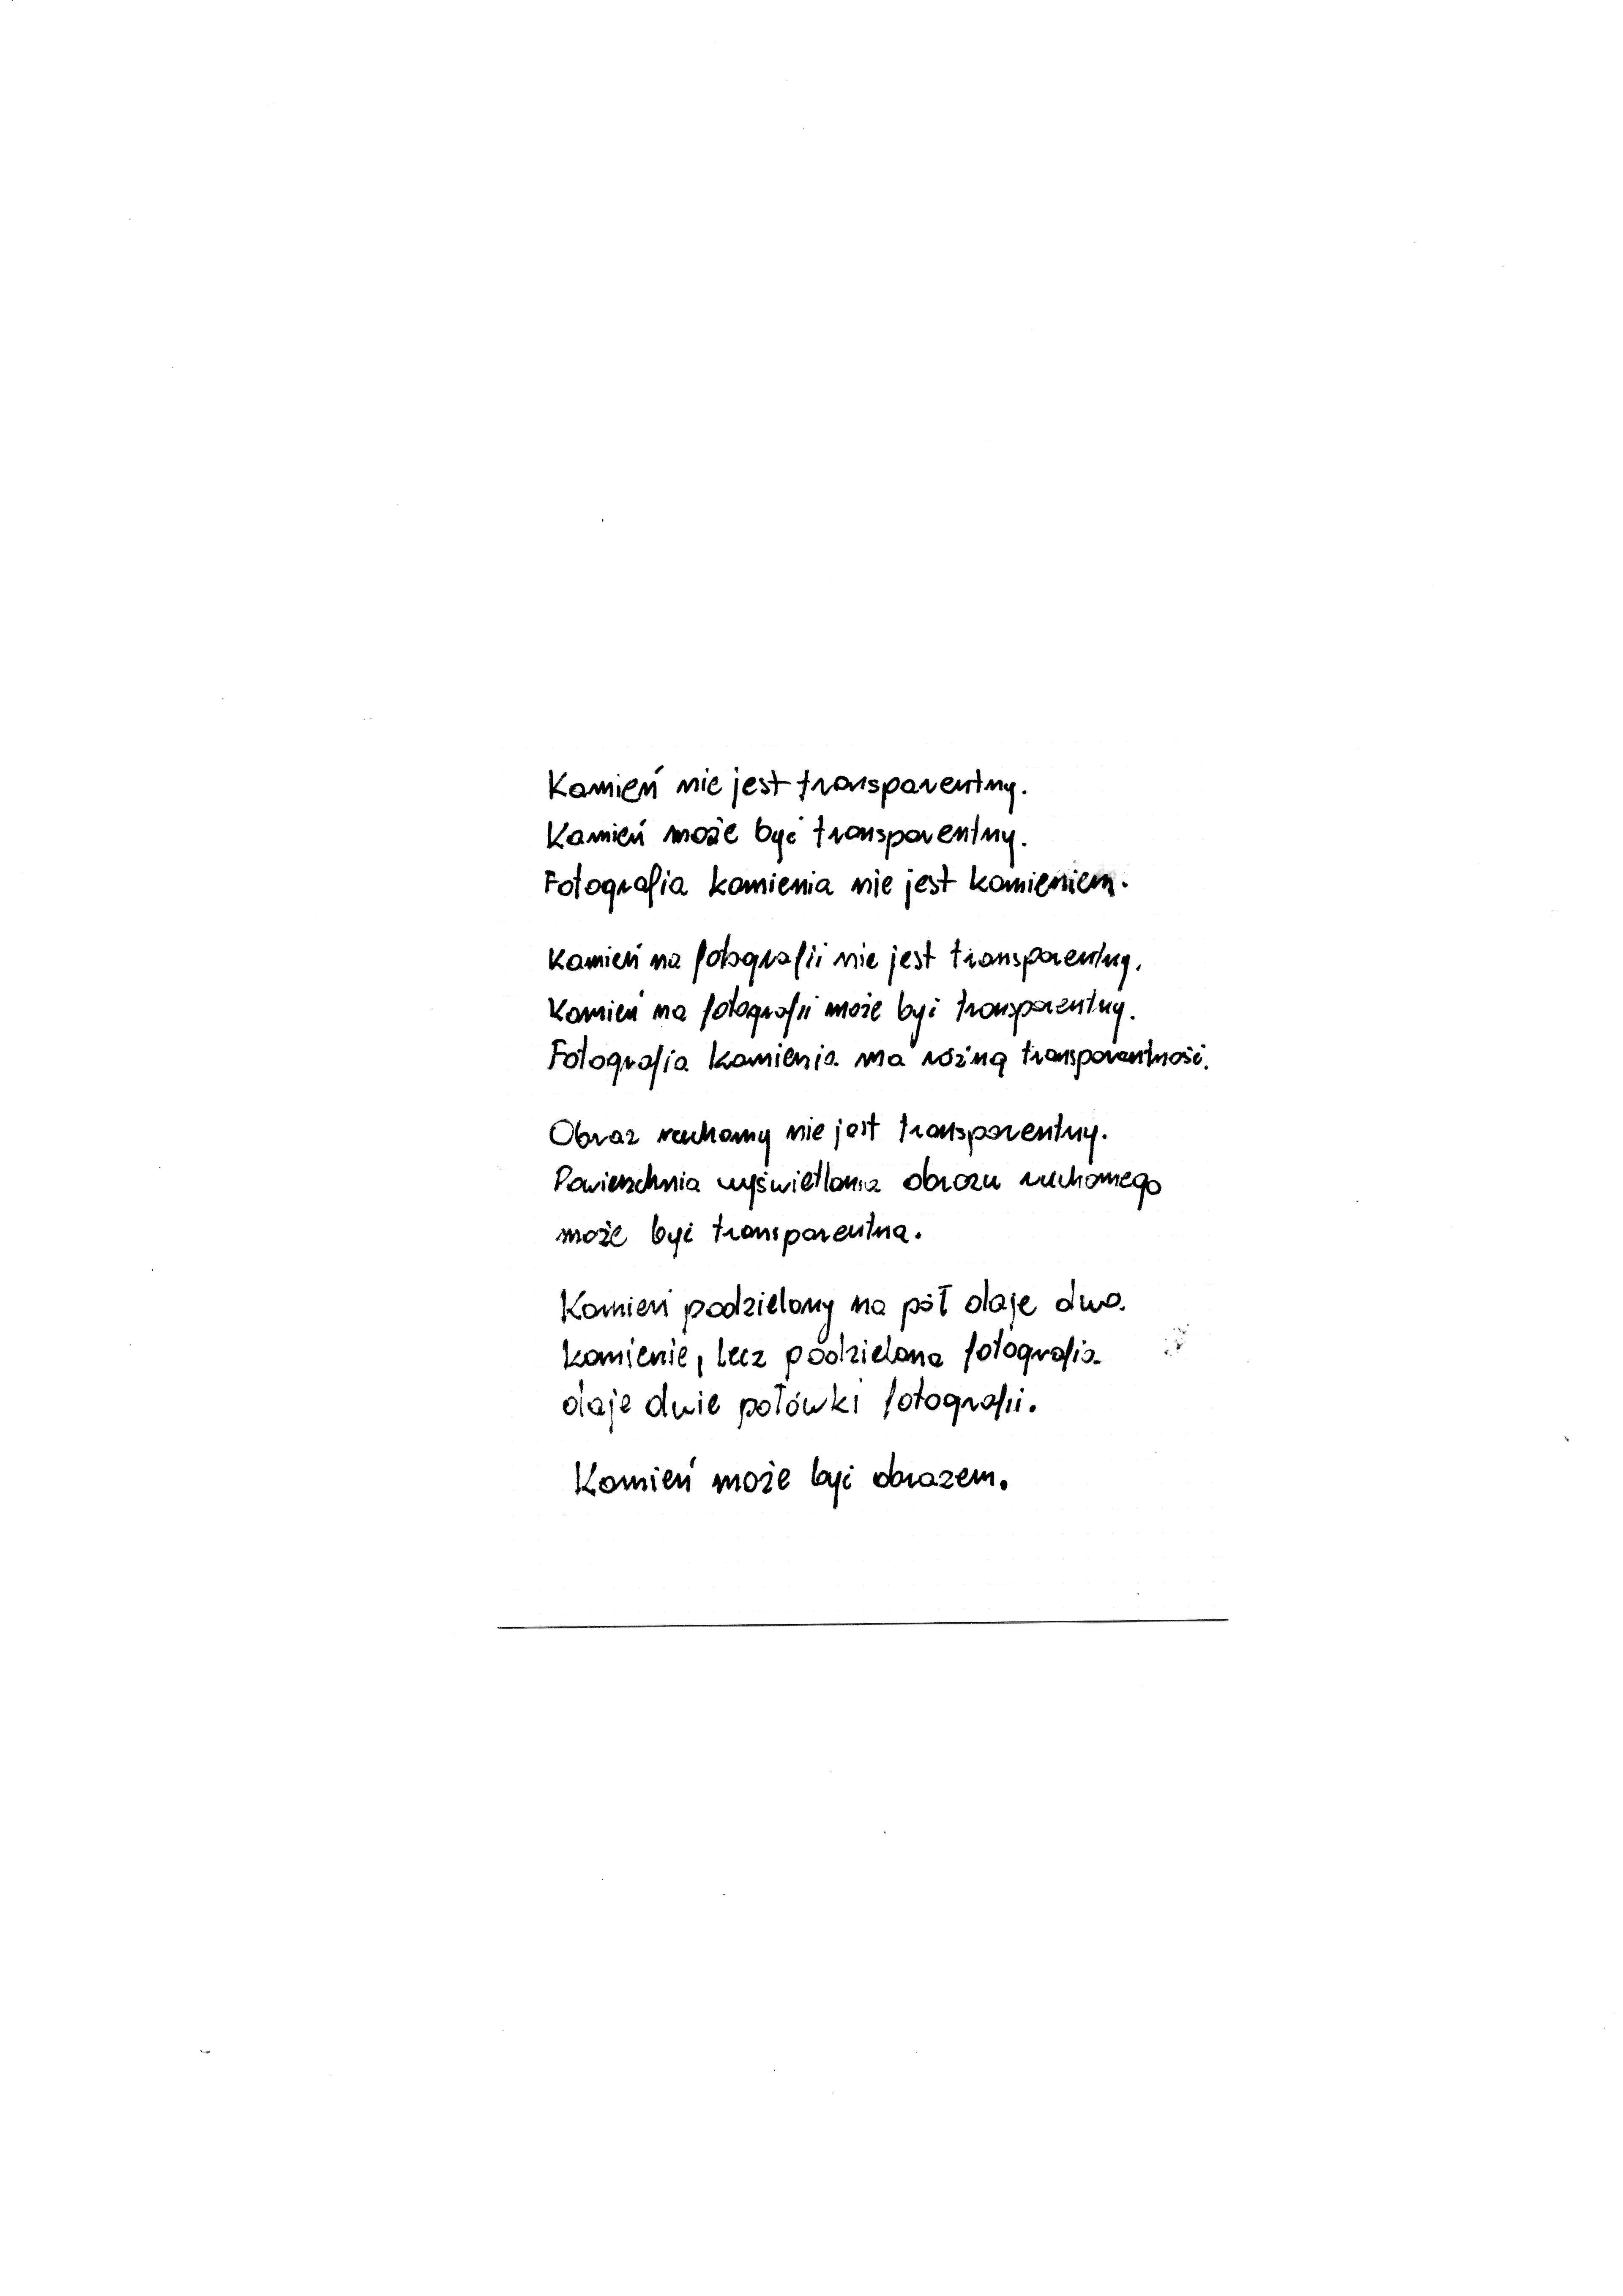 Kamień nie jest transparentny.
Kamień może być transparentny.
Fotografia kamienia nie jest kamieniem.
Kamień na fotografii nie jest transparentny.
Kamień na fotografii może być transparentny.
Fotografia kamienia ma różną transparentność.
Obraz ruchomy nie jest transparentny.
Powierzchnia wyświetlania obrazu ruchomego
może być transparentna.
Kamień podzielony na pół daje dwa
kamienie, lecz podzielona fotografia
daje dwie połówki fotografii.
Kamień może być obrazem.